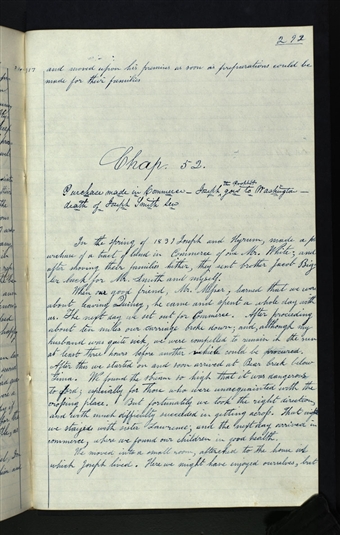 292
and moved upon his premises as soon as preparations could be
made for their families
Chap. 52.
the Prophet
Purchase made in Commerce — Joseph goes to Washington —
death of Joseph Smith Sen
In the Spring of 1839 Joseph and Hyrum, made a
purchase of a tract of land in Commerce of one Mr. White; and
after moving their families thither, they sent brother Jacob
back for Mr. Smith and myself.
When our good friend, Mr. Messer, learned that we were
about leaving Quincy, he came and spent a whole day with
us. The next day we set out for Commerce. After proceeding
about ten miles our carriage broke down; and, although my
husband was quite sick, we were compelled to remain in the sun
at least three hours before another vehicle could be procured.
After this we started on and soon arrived at Bear Creek, below
Lima. We found this stream so high that it was dangerous
to ford, especially for those who were unacquainted with the
crossing place. But fortunately we took the right direction,
and with much difficulty succeeded in getting across. That night
we stayed with sister Lawrence, and the next day arrived in
Commerce, where we found our children in good health.
We moved into a small room, attached to the house in
which Joseph lived. Here we might have enjoyed ourselves, but